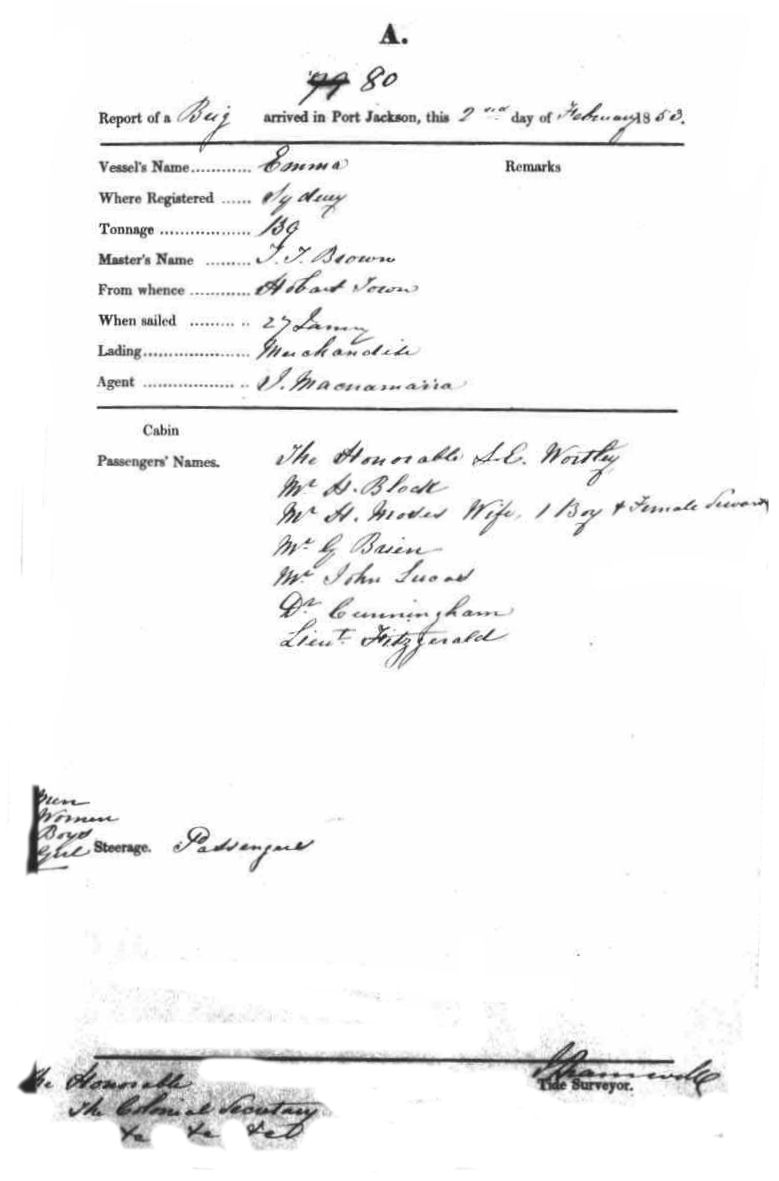 A.
99 80
Report of a Brig arrived in Port Jackson, this 2nd day of February 1853.
Vessel's Name............ Emma Remarks
Where Registered ...... Sydney
Tonnage .................. 139
Master's Name ......... T. T. Brown
From whence ............ Hobart Town
When sailed ......... .. 27 Jany
Lading..................... Merchandise
Agent .................. .. J. Macnamara
Cabin
Passengers' Names. The Honorable S. E. Wortley
Mr H. Block
Mr H. Moses Wife, 1 Boy & Female Servant
Mr G Brien
Mr John Lucas
Dr Cunningham
Lieut Fitzgerald
Men
Women
Boys
Girl Steerage. Passengers
Tide Surveyor.
The Honorable
The Colonial Secretary
&c &c &c